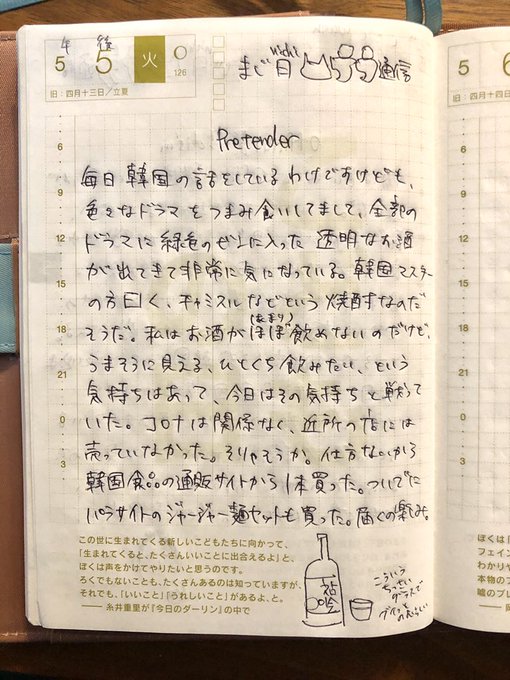 4 後
5 5 火 126
旧:四月十三日/立夏
まど日 night 通信
Pretender
毎日韓国の話をしているわけですけども、
色々なドラマをつまみ食いしてまして、全部の
ドラマに緑色のビンに入った透明なお酒
が出てきて非常に気になっている。韓国マスター
の方曰く、チャミスルなどという焼酎なのだ
そうだ。私はお酒がほぼ(あまり)飲めないのだけど、
うまそうに見える、ひとくち飲みたい、という
気持ちはあって、今日はその気持ちと戦って
いた。コロナは関係なく、近所の店には
売っていなかった。そりゃそうか。仕方ないから
韓国食品の通販サイトから1本買った。ついでに
パラサイトのジャージャー麺セットも買った。届くの楽しみ。
6
9
12
15
18
21
0
3
こういう
ちっさい
グラスで
グイッと
のむらしい
この世に生まれてくる新しいこどもたちに向かって、
「生まれてくると、たくさんいいことに出合えるよ」と、
ぼくは声をかけてやりたいと思うのです。
ろくでもないことも、たくさんあるのは知っていますが、
それでも、「いいこと」「うれしいこと」があるよ、と。
── 糸井重里が『今日のダーリン』の中で
5
旧:四月十四日
6
9
12
15
18
21
0
3
ぼくは「
フェイン
わかりや
本物のフ
嘘のプレ